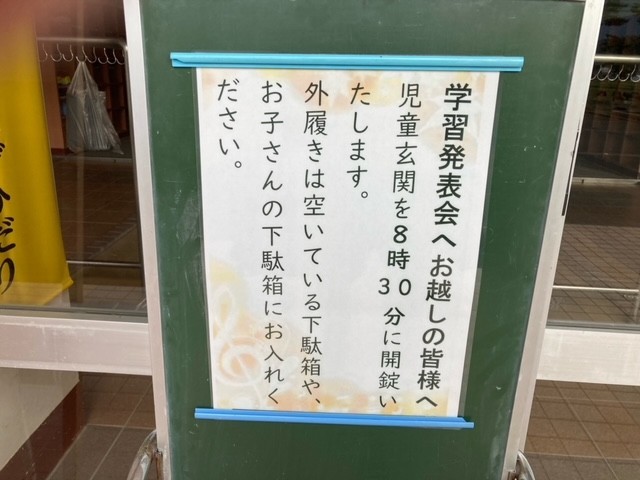 学習発表会へお越しの皆様へ
児童玄関を8時30分に開錠い
たします。
外履きは空いている下駄箱や、
お子さんの下駄箱にお入れく
ださい。